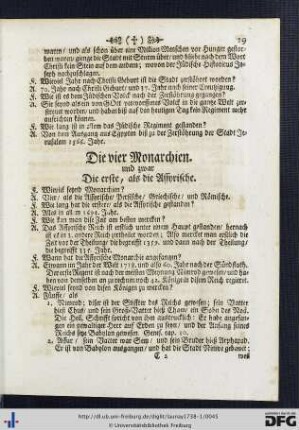 ( † ) 19
waren / und als schon über eine Million Menschen vor Hunger gestor-
ben waren / gienge die Stadt mit Sturm über / und bliebe nach dem Wort
Christi kein Stein auf dem andern; wovon der Jüdische Historicus Jo-
seph nachzuschlagen.
F. Wieviel Jahr nach Christi Geburt ist die Stadt zerstöhret worden?
A. 70. Jahr nach Christi Geburt / und 37. Jahr nach seiner Creutzigung.
F. Wie ist es dem Jüdischen Volck nach der Zerstöhrung gegangen?
A. Sie seynd als ein von GOtt verworffenes Volck in die gantze Welt zer-
streuet worden / und haben biß auf den heutigen Tag kein Regiment mehr
aufrichten können.
F. Wie lang ist in allem das Jüdische Regiment gestanden?
A. Von dem Außgang aus Egypten biß zu der Zerstöhrung der Stadt Je-
rusalem 1566. Jahr.
Die vier Monarchien.
und zwar
Die erste / als die Assyrische.
F. Wieviel seynd Monarchien?
A. Vier / als die Assyrische / Persische / Griechische / und Römische.
F. Wie lang hat die erstere / als die Assyrische gestanden?
A. Alles in all 1695. Jahr.
F. Wie kan man dise Zeit am besten mercken?
A. Das Assyrische Reich ist erstlich unter einem Haupt gestanden / hernach
ist es in 2. andere Reich zertheilet worden / Also mercket man erstlich die
Zeit vor der Theilung / die begreifft 1359. und dann nach der Theilung /
die begreifft 335. Jahr.
F. Wann hat die Assyrische Monarchie angefangen?
A. Etwann im Jahr der Welt 1718. und also 60. Jahr nach der Sündfluth.
Der erste Regent ist nach der meisten Meynung Nimrod gewesen / und ha-
ben von demselben an gerechnet noch 32. Königen disem Reich regiert.
F. Wieviel seynd von disen Königen zu mercken?
A. Fünffe / als
1. Nimrod; diser ist der Stiffter des Reichs gewesen; sein Vatter
hieß Chus / und sein Groß-Vatter hieß Cham / ein Sohn des Noä.
Die Heil. Schrifft spricht von ihm austrucklich: Er habe angefan-
gen ein gewaltiger Herr auf Erden zu seyn / und der Anfang seines
Reichs seye Babylon gewesen. Genes. cap. 10.
2. Assur / sein Vatter war Sem / und sein Bruder hieß Arphaxad.
Er ist von Babylon ausgangen / und hat die Stadt Ninive gebauet:
C 2 weil
http://dl.ub.uni-freiburg.de/diglit/launay1738-1/0045
© Universitätsbibliothek Freiburg
gefördert durch die
DFG